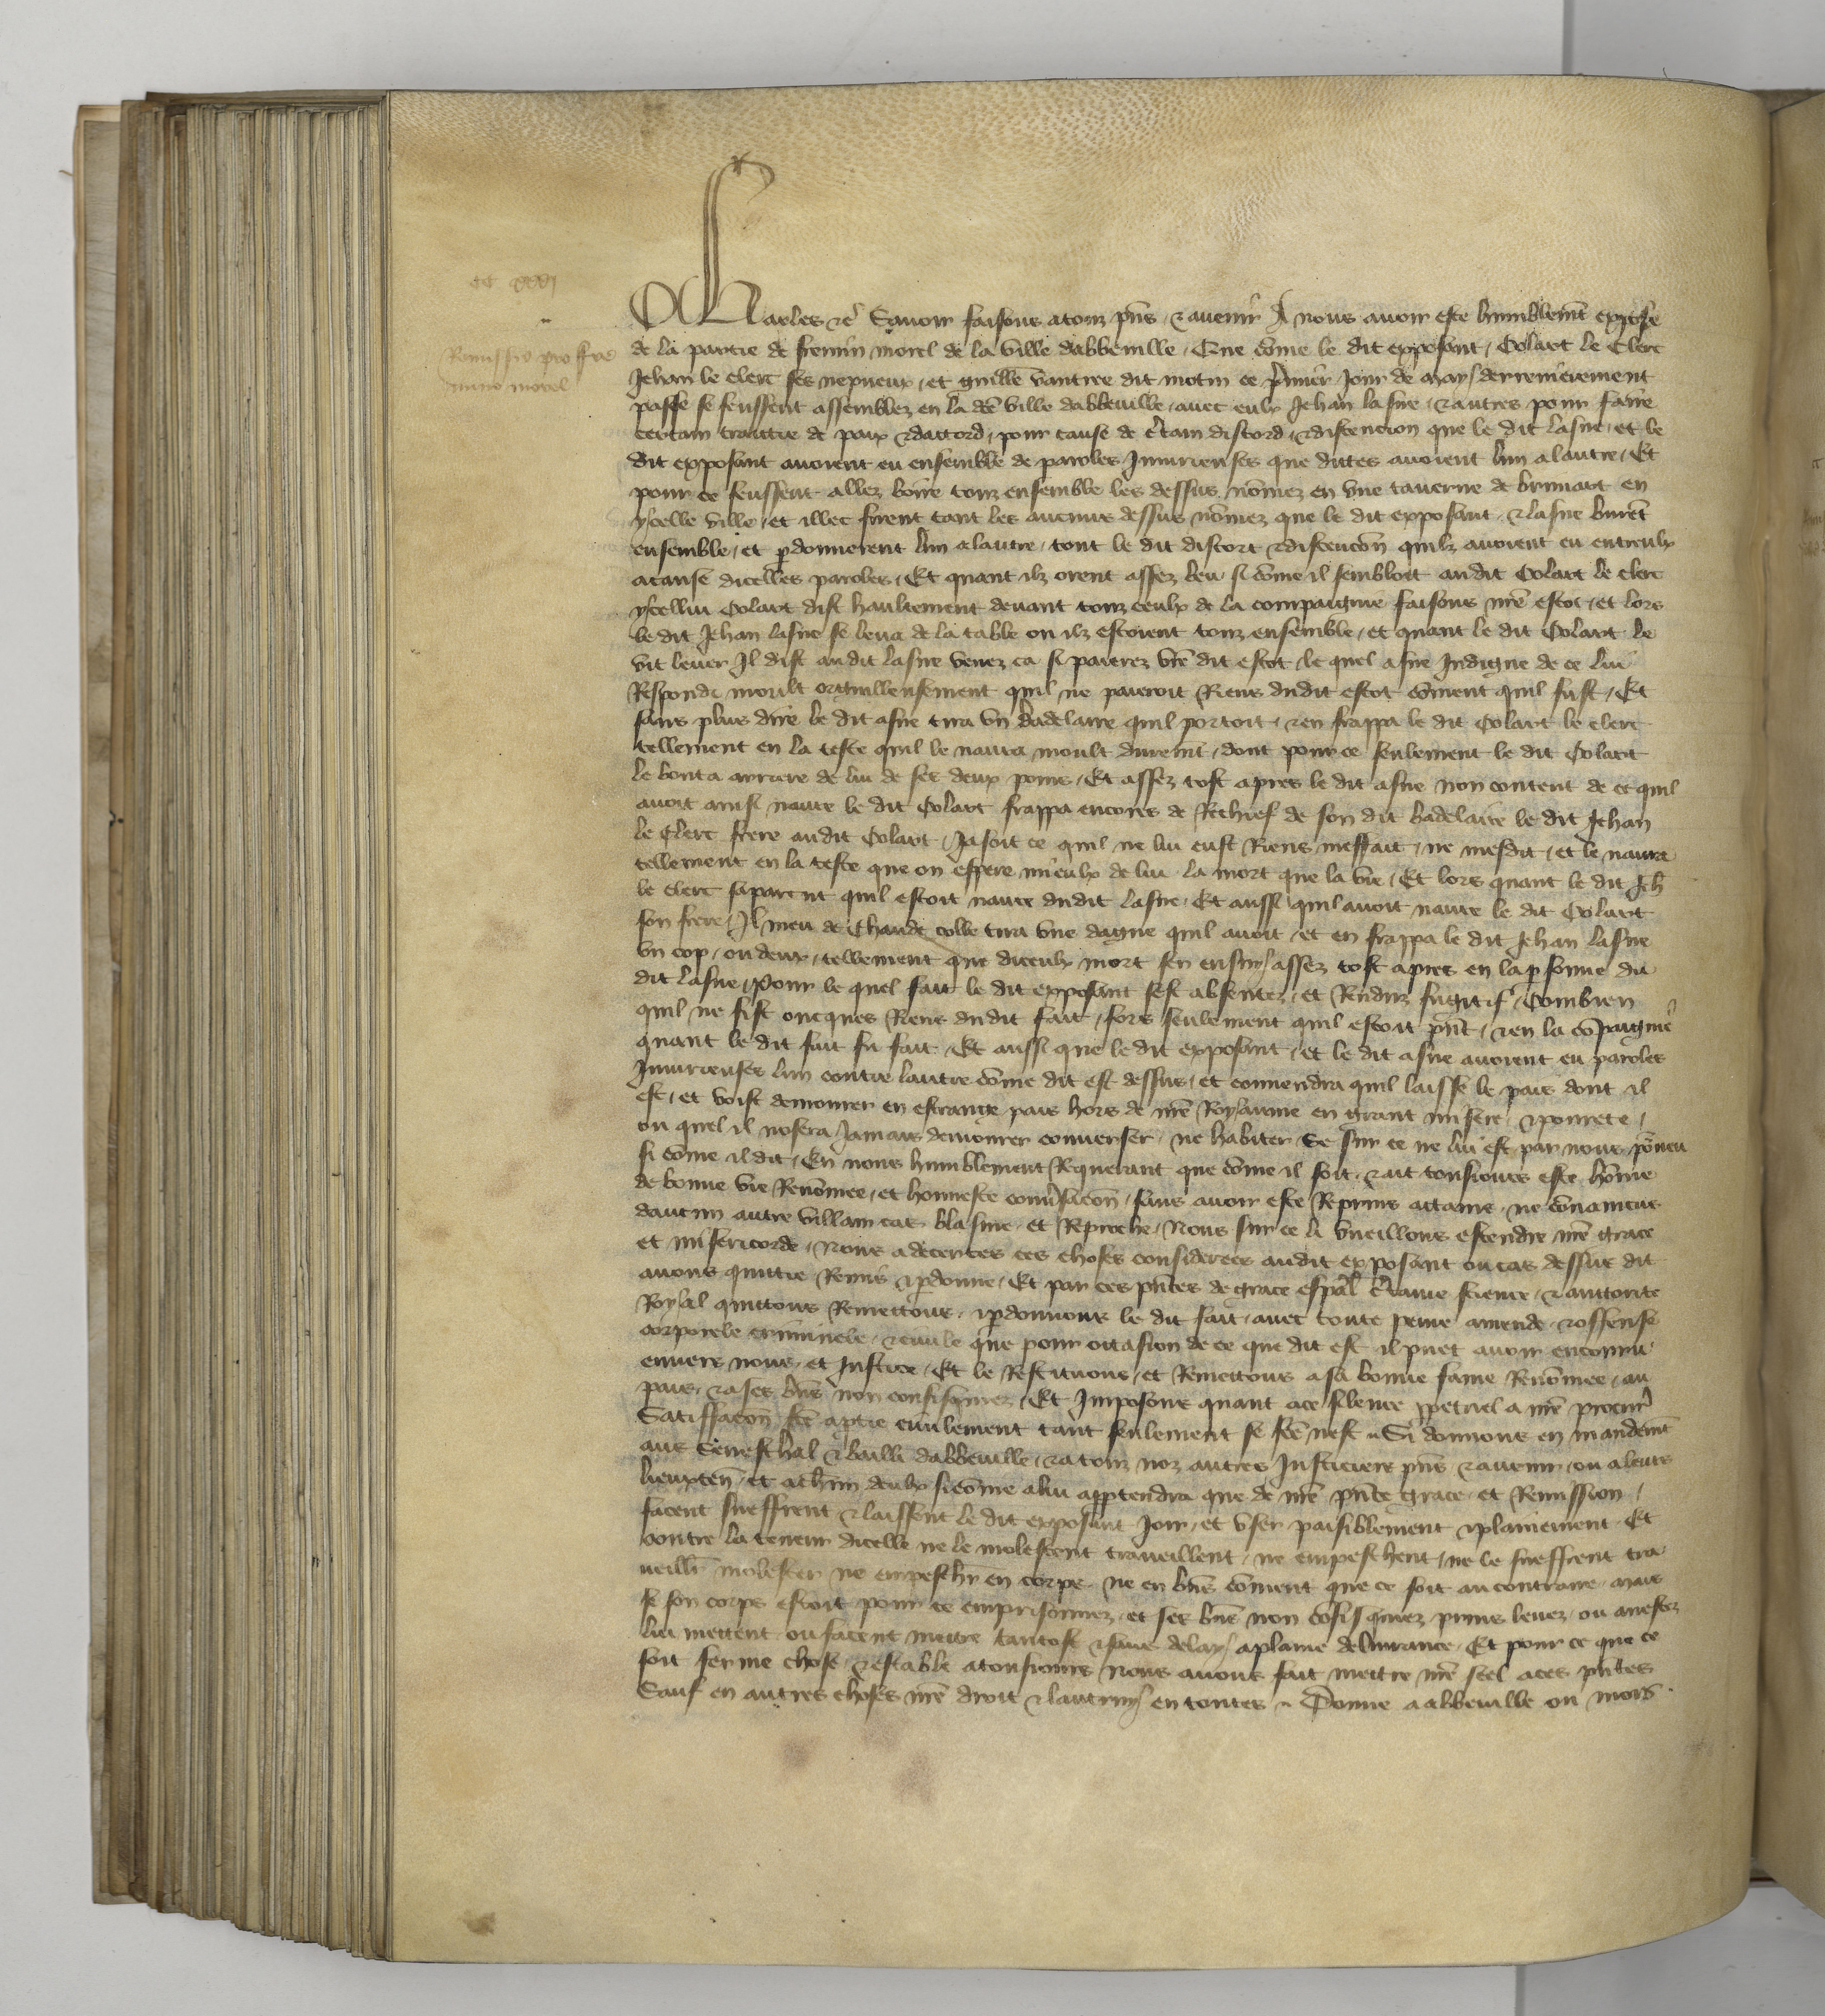 cc xxxi
Remissio pro fre
mino morel
Charles &c Savoir faisons a touz pñs & avenir A nous avoir este humblemt expose
de la partie de fremin morel de la ville dabbeville, Que cõme le dit exposant, Colart le Clerc
Jehan le clerc ses nepueux, et guillẽ vautree dit motin ce pmier Jour de may derrenierement
passe se feussent assemblez en la dce ville dabbeville, avec eulx Jehan lasne, & autres pour faire
certain traittie de paix & daccord, pour cause de ctain discord, & discencion que le dit lasne, et le
dit exposant avoient eu ensemble de paroles Injurieuses que dittes avoient lun a lautre, Et
pour ce feussent allez boire touz ensemble les dessus nõmez en une taverne de brimart en
ycelle ville, et illec firent tant les aucuns dessus nõmez que le dit exposant & lasne buret
ensemble, et pdonnerent lun a lautre, tout le dit discort & discencõn quilz avoient eu entreulx
a cause dicelles paroles, Et quant ilz orent assez beu si cõme il sembloit au dit Colart le clerc
ycellui Colart dist haultement devant touz ceulx de la compaignie faisons nr̃e escot, et lors
le dit Jehan lasne se leva de la table ou ilz estoient touz ensemble, et quant le dit Colart le
vit lever Il dist au dit lasne venez ca si paierez vr̃e dit escot, le quel asne Indigne de ce lui
Respondi moult orguilleusement quil ne paieroit Riens dudit escot cõment quil fust, Et
sans plus dire le dit asne tira un badelaire quil portoit, & en frappa le dit Colart le clerc
tellement en la teste quil le navra moult duremt, dont pour ce seulement le dit Colart
le bouta arriere de lui de ses deux poins, Et assez tost apres le dit asne non content de ce quil
avoit ainsi navre le dit Colart frappa encores de Rechief de son dit badelaire le dit Jehan
le Clerc frere audit Colart, Ja soit ce quil ne lui eust Riens meffait, ne mesdit, et le navra
tellement en la teste que on espere mieulx de lui la mort que la vie, Et lors quant le dit Jeh̃
le clerc saparcut quil estoit navre dudit lasne, Et aussi quil avoit navre le dit Colart
son frere, Il meu de chaude colle tira une dague quil avoit, et en frappa le dit Jehan lasne
un cop, ou deux, tellement que diceulx mort sen ensuy assez tost apres en la psonne du
dit lasne, Pour le quel fait le dit exposant sest absentez, et Renduz fugitif, Combien
quil ne fist oncques Riens dudit fait, fors seulement quil estoit pñt, & en la cõpaignie
quant le dit fait fu fait, Et aussi que le dit exposant, et le dit asne avoient eu paroles
Injurieuses lun contre lautre cõme dit est dessus, et convendra quil laisse le pais dont il
est, et voist demourer en estrange pais hors de nr̃e Royaume en grant misere, & povrete,
ou quel il nosera Jamais demourer converser, ne habiter Se sur ce ne lui est par nous pourveu
si cõme il dit, En nous humblement Requerant que cõme il soit, & ait tousjours este hõme
de bonne vie Renõmee, et honneste conv̾sacõn, sans avoir este Reprins attaint, ne cõvaincus
daucun autre villain cas blasme, et Reproche, Nous sur ce li vueillons estendre nr̃e grace
et misericorde, Nous adecertes ces choses considerees audit exposant ou cas dessus dit
avons quittie Remis & pdonne, Et par ces pñtes de grace espãl ctaine science, & auttorite
Royal quittons Remettons, & pdonnons le dit fait, avec toute peine amende & offense
corporele criminele, & civile que pour occasion de ce que dit est il puet avoir encouru
envers nous, et Justice, Et le Restituons, et Remettons a sa bonne fame Renõmee, au
pais, & a ses bñs non confisquez, Et Imposons quant a ce silence ppetuel a nr̃e procur̃
Satiffacõn fce a ptie civilement tant seulement se fce nest, Si donnons en mandemt
aus Seneschal & bailli dabbeville, & a touz noz autres Justiciers pñs & avenir, ou a leurs
lieuxten̄, et a chũn deulx si cõme a lui apptendra que de nr̃e pñte grace, et Remission,
facent sueffrent & laissent le dit exposant Joir, et user paisiblement & plainement, Et
contre la teneur dicelle ne le molestent traveillent, ne empeschent, ne le sueffrent tra
veillr̃ molester ne empeschr̃ en corps, ne en bñs cõment que ce soit au contraire, mais
se son corps estoit pour ce emprisonnez, et ses bñs non cõfisquez, prins levez, ou arrestez
lui mettent, ou facent mettre tantost & sanz delay a plaine delivrance, Et pour ce que ce
soit ferme chose, & estable a tousjours Nous avons fait mettre nr̃e seel a ces pñtes
Sauf en autres choses nr̃e droit & lautruy en toutes, Donne a abbeville ou mois